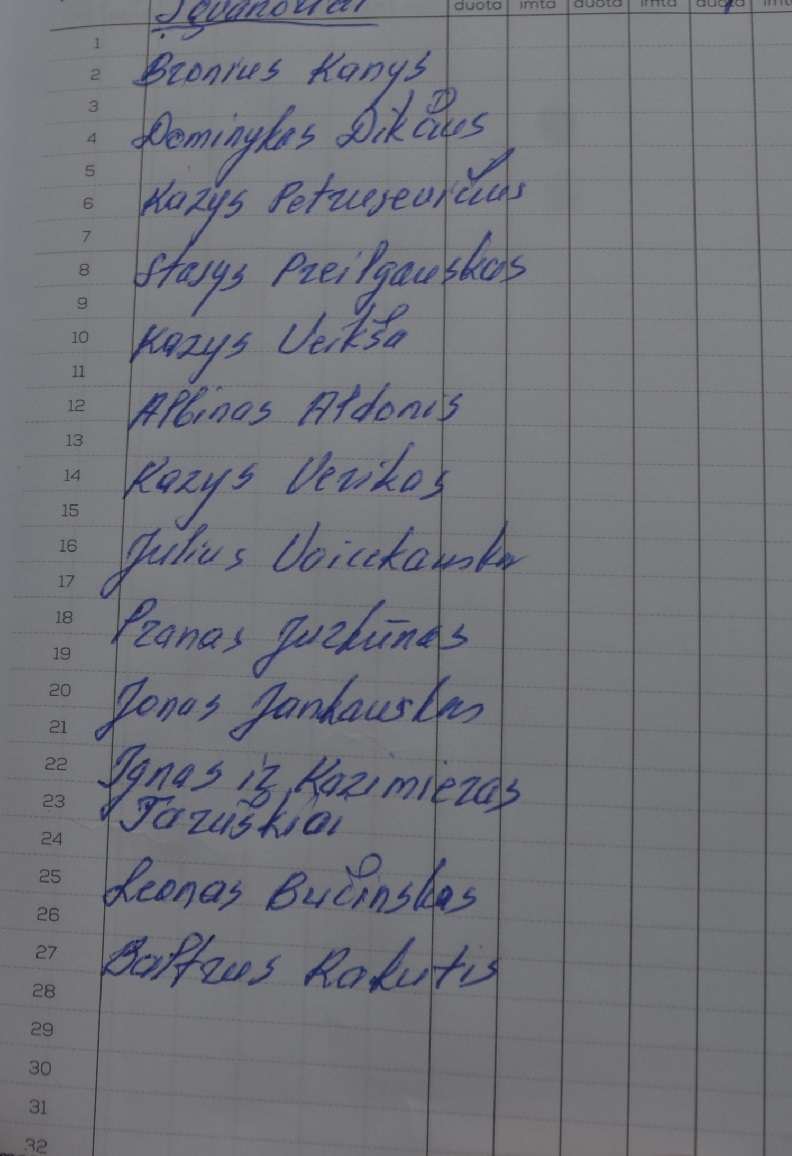 duota imta duota imta duota imta
1
2 Bronius Kanys
3
4 Dominykas
5
6 Kazys Petrusevičius
7
8 Stasys Preilgauskas
9
10 Kazys Veikša
11
12 Albinas Aldonis
13
14 Kazys Verikas
15
16 Julius
17
18 Pranas Jurkūnas
19
20 Jonas Jankauskas
21
22 Ignas ir Kazimieras
23 Taruškiai
24
25 Leonas Bučinskas
26
27 Baltrus Rakutis
28
29
30
31
32